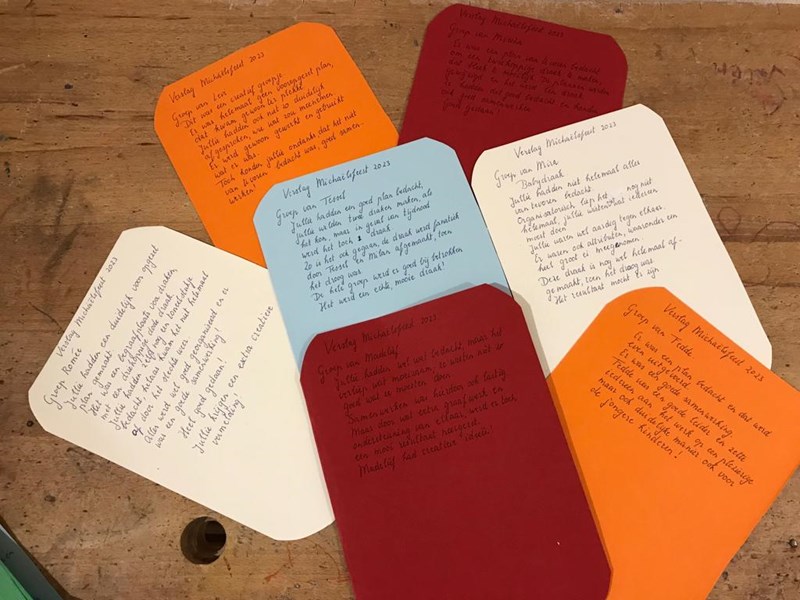 Verslag Michaëlsfeest 2023
Groep van Leve
Dit was een creatief groepje
Er was helemaal geen vooropgezet plan,
dat kwam gewoon ter plekke.
Jullie hadden ook niet zo duidelijk
afgesproken, wie wat zou meenemen.
Er werd gewoon gewerkt en gebruikt
wat er was.
Toch konden jullie ondanks dat het niet
van tevoren bedacht was, goed samen-
werken!
Verslag Michaëlsfeest 2023
Groep van
Er was een plan van tevoren bedacht
om een draak te maken,
Verslag Michaëlsfeest 2023
Groep van Tessel
Jullie hadden een goed plan bedacht,
jullie wilden twee draken maken, als
het kon, maar in geval van tijdnood
werd het toch 1 draak
Zo is het ook gegaan, de draak werd fanatiek
door Tessel en Milan afgemaakt, toen
het droog was
De hele groep werd er goed bij betrokken
Het werd een echte, mooie draak!
Verslag Michaëlsfeest 2023
Groep van Mira
Babydraak
Jullie hadden niet helemaal alles
van tevoren bedacht.
Organisatorisch liep het nog niet
helemaal, jullie wisten wat iedereen
moest doen
Jullie waren wel aardig tegen elkaar.
Er waren ook attributen, waaronder een
heel groot ei meegenomen
Deze draak is nog wel helemaal af-
gemaakt, toen het droog was
Het resultaat mocht er zijn
Verslag Michaëlsfeest 2023
Groep Romée
Jullie hadden een duidelijk voor opgezet
plan gemaakt
Het was een begraafplaats voor draken,
met een driekoppige dode draak
Jullie hadden zelf nog een toneelstukje
bedacht, helaas kwam het niet helemaal
af door het slechte weer
Alles werd wel goed georganiseerd en er
was een goede samenwerking!
Heel goed gedaan!
Jullie krijgen een extra creatieve
vermelding!
Verslag Michaëlsfeest 2023
Groep van Madelief
Jullie hadden wel wat bedacht, maar het
verliep wat moeizaam, ze wisten niet zo
goed wat ze moesten doen
Samenwerken was hierdoor ook lastig
Maar door wat extra graafwerk en
ondersteuning van elkaar, werd er toch
een mooi resultaat neergezet.
Madelief had creatieve ideeën!
Verslag Michaëlsfeest 2023
Groep van Tedde
Er was een plan bedacht en dat werd
ook uitgevoerd
Er was een goede samenwerking
Tedde was een goede leider en zette
iedereen aan het werk op een plezierige
maar ook duidelijke manier ook voor
de jongere kinderen!